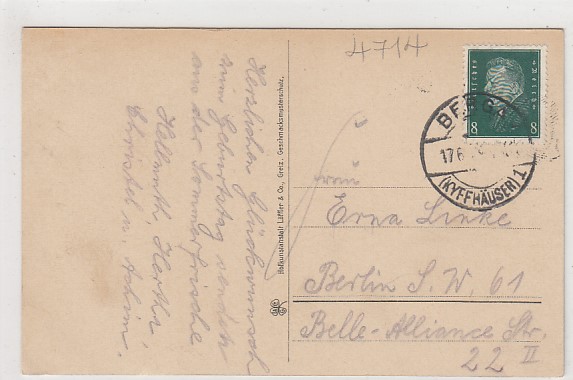 Herzlichen Glückwunsch
zum Geburtstag sendet
aus der Sommerfrische
Hellmuth, Hertha,
Christel u. Achim.
Hofkunstanstalt Löffler & Co., Greiz. Geschmacksmusterschutz.
4714
8 8
BERGA
17.6.
(KYFFHÄUSER) 1
Frau
Erna Linke
Berlin S.W. 61
Belle-Alliance Str.
22 II